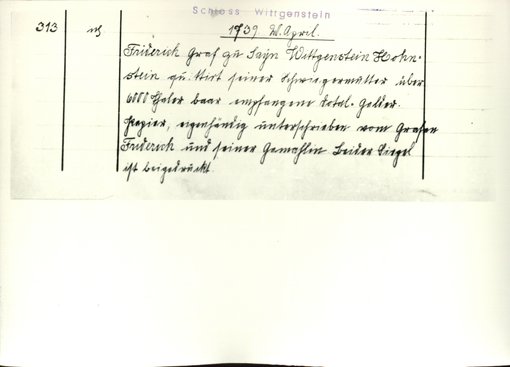 Schloss Wittgenstein
313
1739. 20. April.
Friderich Graf zu Sayn Wittgenstein Hohn-
stein quittirt seiner Schwiegermutter über
6000 Thaler baar empfangene Dotal-Gelder.
Papier, eigenhändig unterschrieben vom Grafen
Friderich und seiner Gemahlin Beider Siegel
ist beigedruckt.